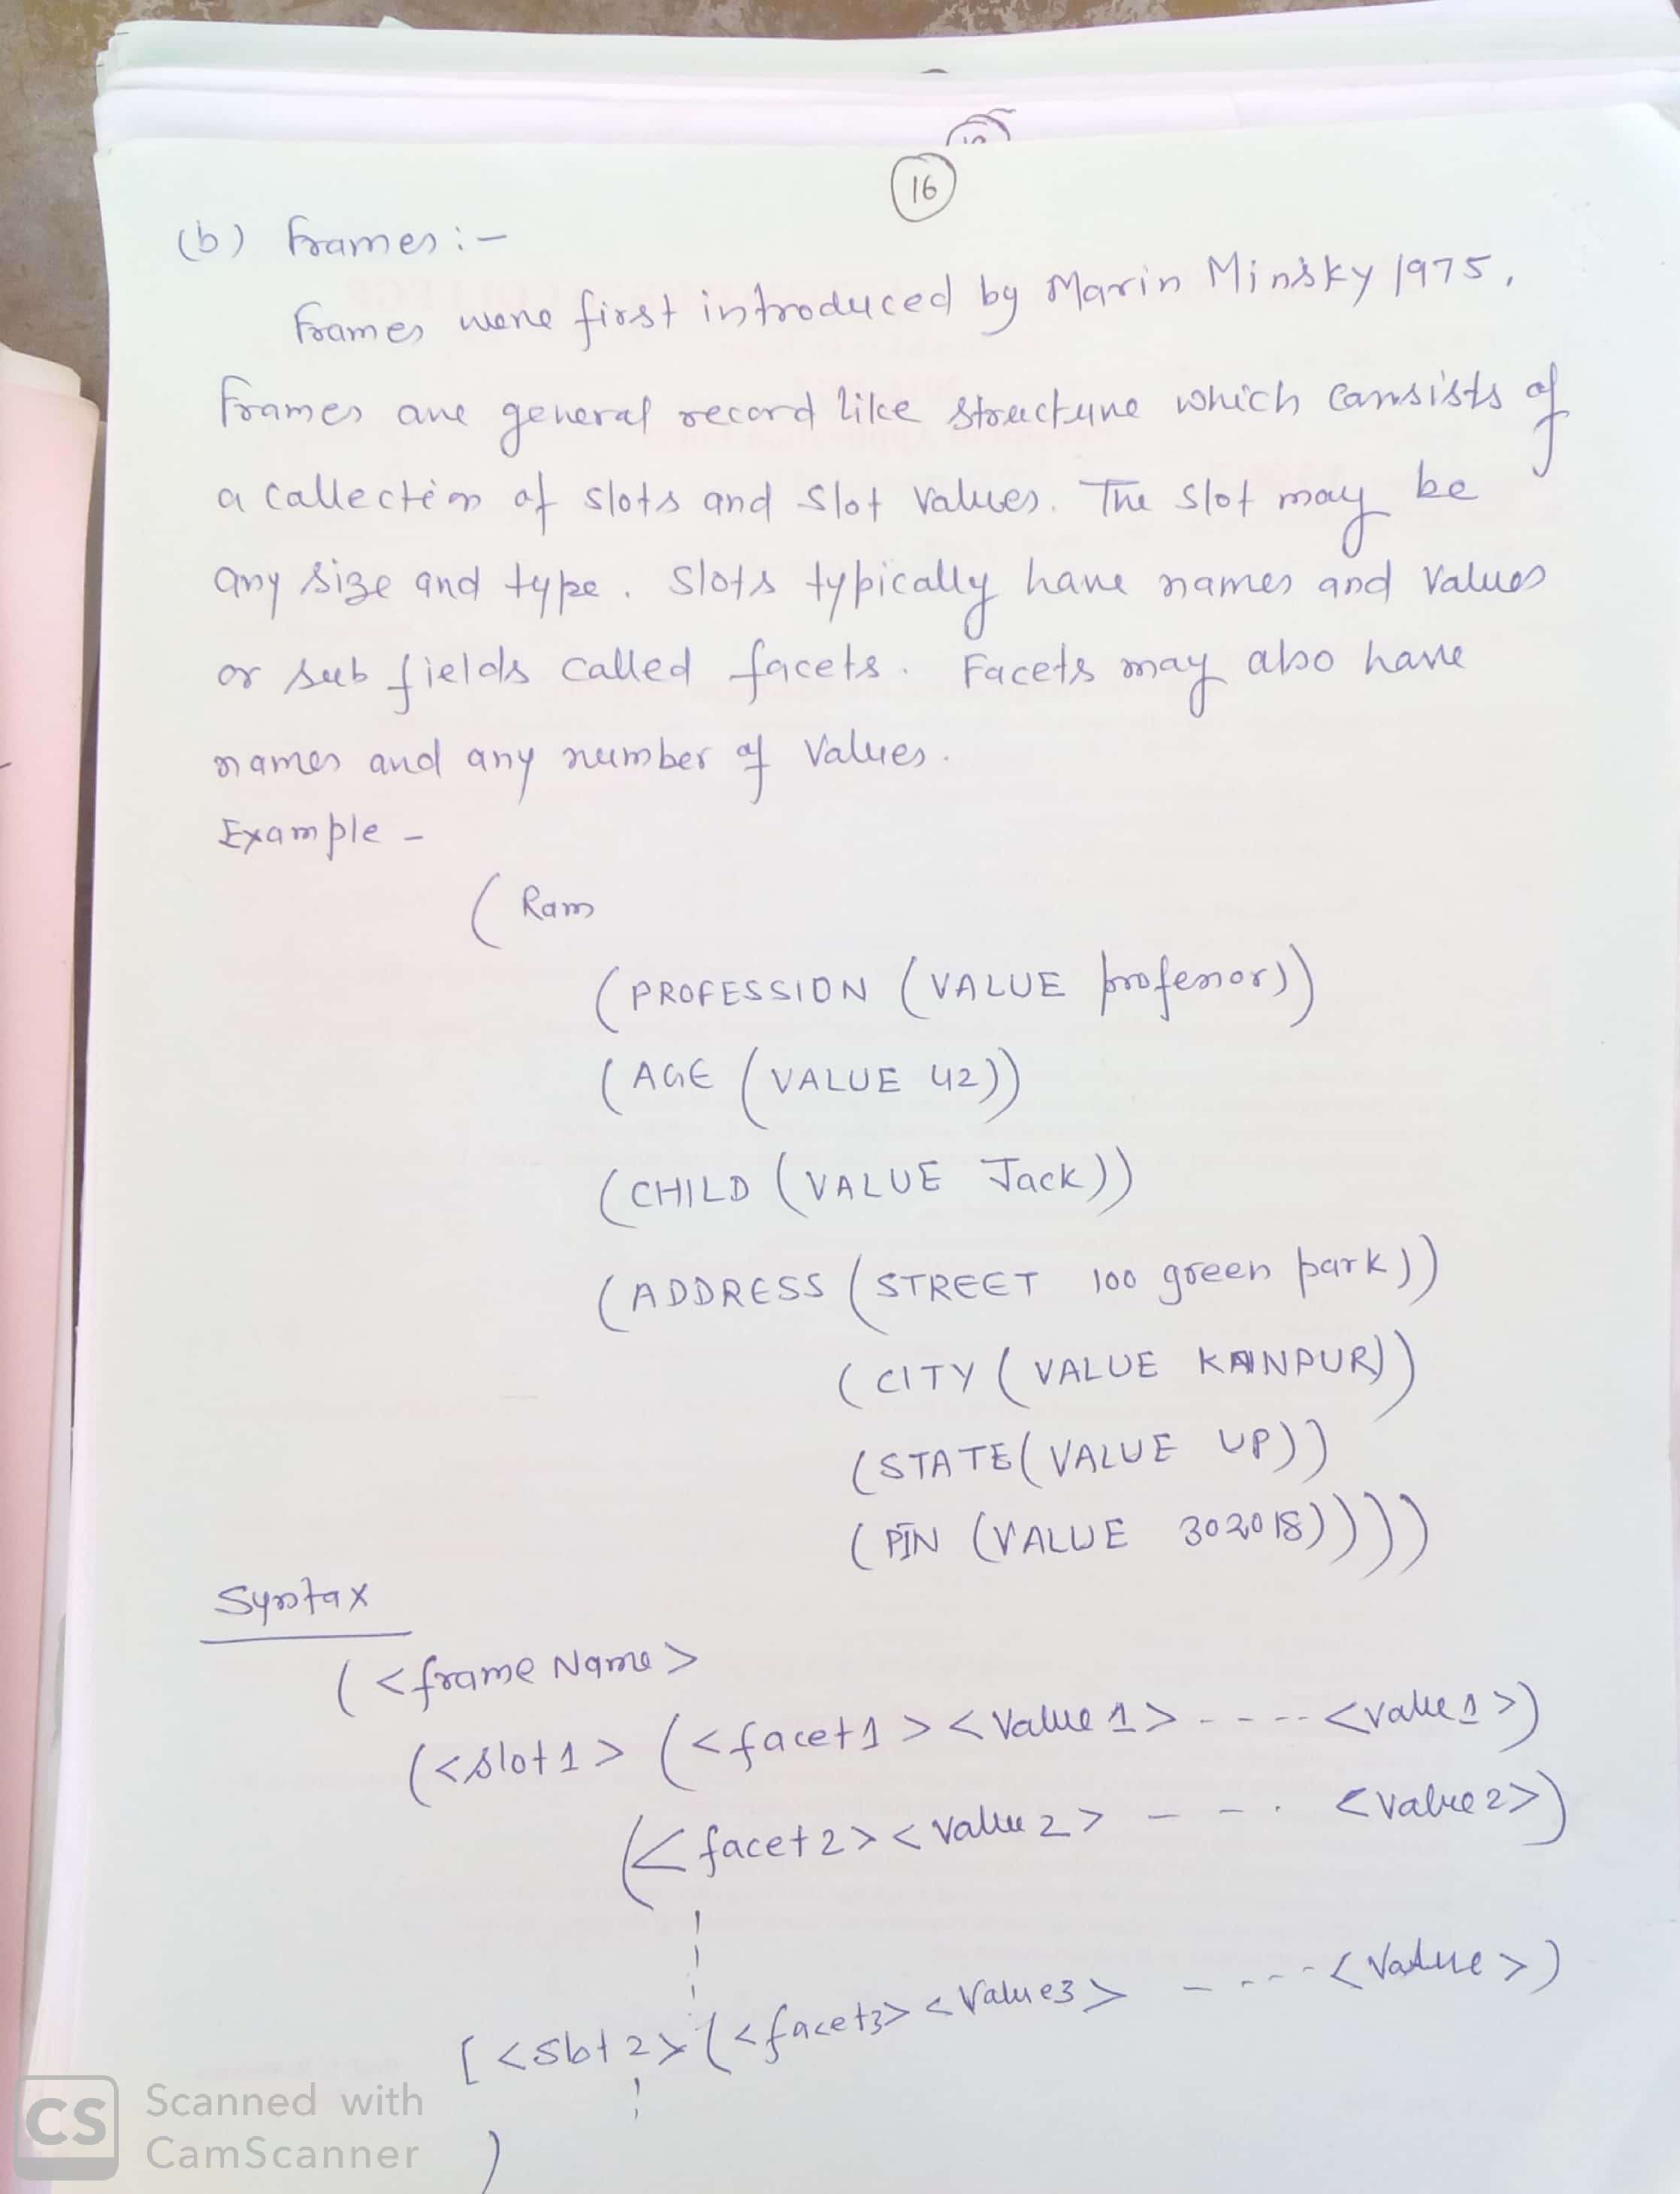 16
(b) Frames :-
Frames were first introduced by Marin Minsky 1975,
Frames are general record like structure which consists of
a collection of slots and slot values. The slot may be
any size and type. Slots typically have names and values
or sub fields called facets. Facets may also have
names and any number of values.
Example -
( Ram
( PROFESSION ( VALUE professor))
( AGE ( VALUE 42))
( CHILD ( VALUE Jack))
( ADDRESS ( STREET 100 green park))
( CITY ( VALUE KANPUR))
(STATE( VALUE UP))
( PIN (VALUE 302018))))
Syntax
( <frame Name>
(<slot1> (<facet1><Value 1> - - - - <value1>)
(<facet2><value2> - - . <value2>)
[<slot2> (<facet3><Value3> - - - - <Value>)
)
CS Scanned with
CamScanner